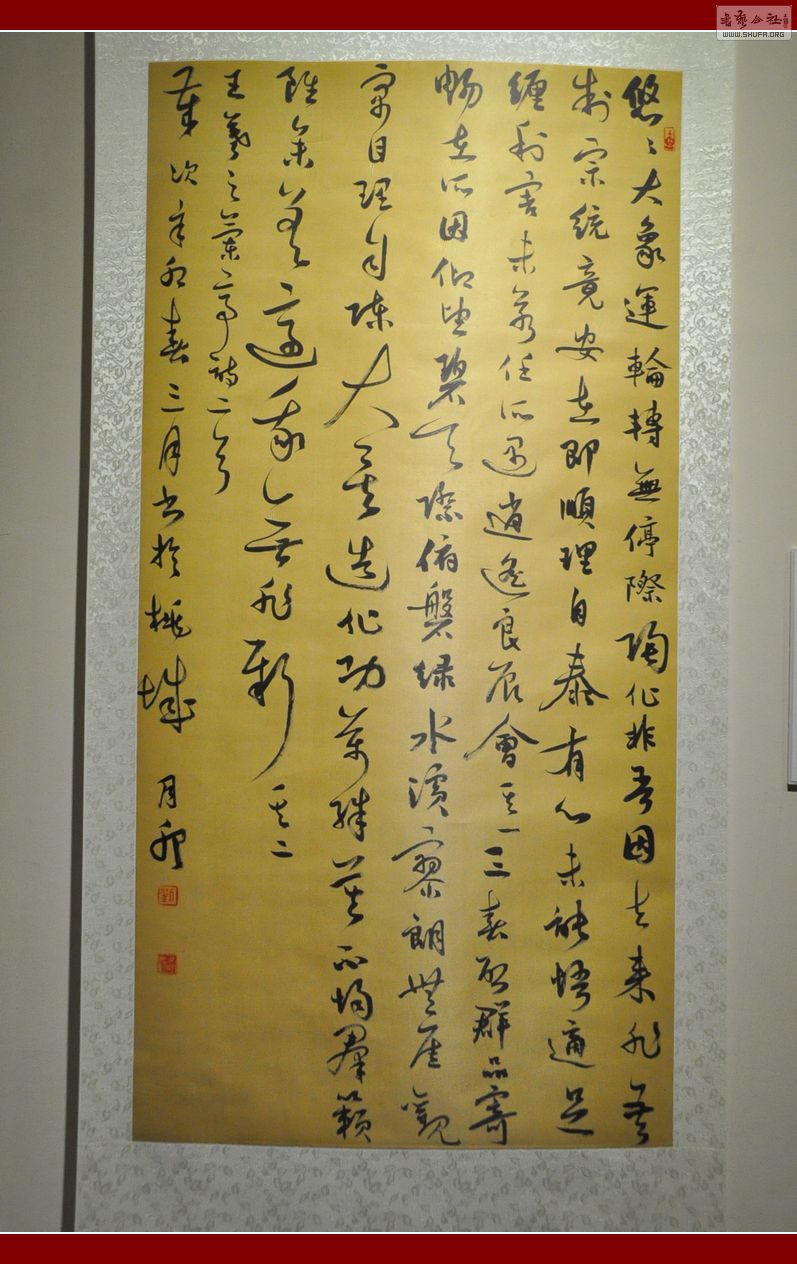 悠々大象運輪轉無停際陶化非吾因去来非吾
制宗統竟安在即順理自泰有心未能悟適足
纏利害未若任所遇逍遙良辰會其一三春啓群品寄
暢在所因仰望碧天際俯磐绿水濱寥朗無厓觀
寓目理自陳大矣造化功萬殊莫不均羣籟
雖參差適我無非新其二
王羲之蘭亭詩二首
歲次辛卯春三月書於桃城
書藝公社
WWW.SHUFA.ORG